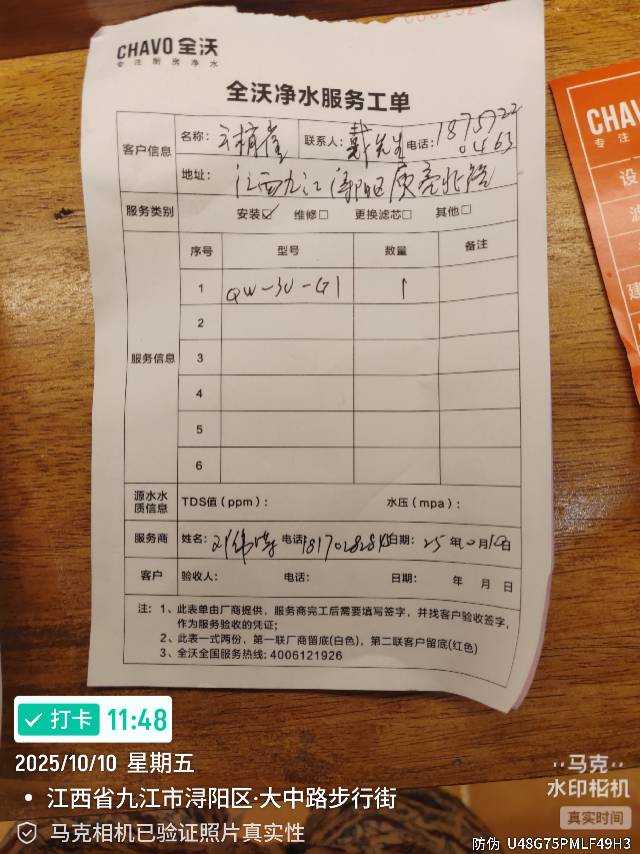 CHAVO 全沃
专注厨房净水
全沃净水服务工单
客户信息 名称: 联系人: 戴先生 电话: 1875722
0463
地址: 江西九江浔阳区庾亮北路
服务类别 安装☑ 维修□ 更换滤芯□ 其他□
服务信息 序号 型号 数量 备注
1 QW-3U-G1 1
2
3
4
5
6
源水水质信息 TDS值(ppm): 水压(mpa):
服务商 姓名: 电话: 日期: 25年10月10日
客户 验收人: 电话: 日期: 年 月 日
注: 1、此表单由厂商提供,服务商完工后需要填写签字,并找客户验收签字,
作为服务验收的凭证;
2、此表一式两份,第一联厂商留底(白色),第二联客户留底(红色)
3、全沃全国服务热线: 4006121926
CHAVO
专注
设
滤
建
打卡 11:48
2025/10/10 星期五
江西省九江市浔阳区·大中路步行街
马克相机已验证照片真实性
马克
水印相机
真实时间
防伪 U48G75PMLF49H3